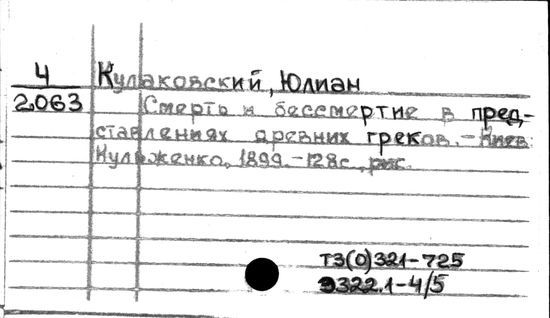 4
2063
Кулаковский, Юлиан
Смерть и бессмертие в пред-
ставлениях древних греков. - Киев:
Кульженко, 1899. - 128с., рис.
Т3(0)321-725
Э322.1-4/5